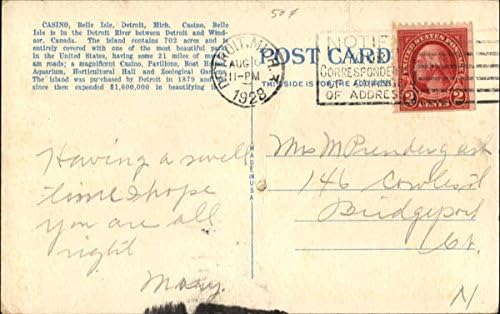 50¢
CASINO, Belle Isle, Detroit, Mich. Casino, Belle
Isle is in the Detroit River between Detroit and Wind-
sor, Canada. The Island contains 702 acres and is
entirely covered with one of the most beautiful parks
in the United States, having some 21 miles of
am roads; a magnificent Casino, Pavilions, Boat
Aquarium, Horticultural Hall and Zoological Gardens.
The Island was purchased by Detroit in 1879 and
since then expended $1,600,000 in beautifying
POST CARD
DETROIT, MICH.
AUG 1
11-PM
1928
NOTIFY
CORRESPONDENTS
OF CHANGE
OF ADDRESS
UNITED STATES POSTAGE
2 CENTS 2
THIS SIDE IS FOR THE ADDRESS
MADE IN USA
Having a swell
time & hope
you are all
right
Mary.
Mrs M Prendergast
146 Cowles St
Bridgeport
Ct.
N